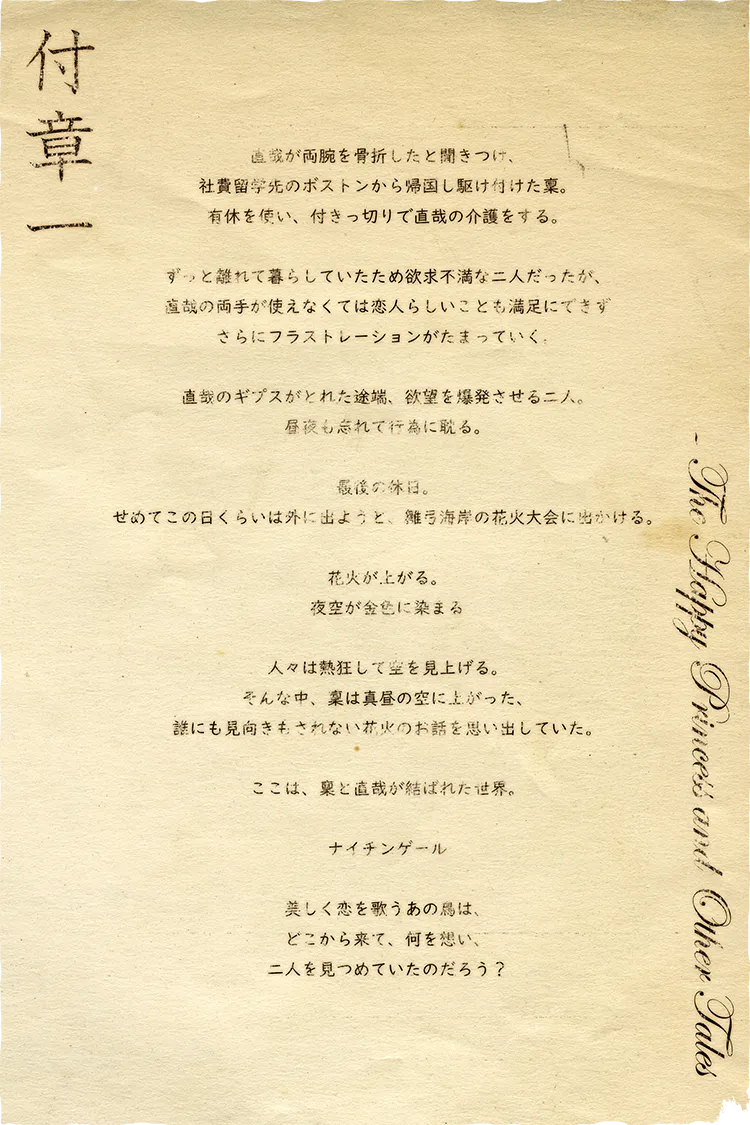 付章一
直哉が両腕を骨折したと聞きつけ、
社費留学先のボストンから帰国し駆け付けた稟。
有休を使い、付きっ切りで直哉の介護をする。
ずっと離れて暮らしていたため欲求不満な二人だったが、
直哉の両手が使えなくては恋人らしいことも満足にできず
さらにフラストレーションがたまっていく。
直哉のギプスがとれた途端、欲望を爆発させる二人。
昼夜も忘れて行為に耽る。
最後の休日。
せめてこの日くらいは外に出ようと、雛弓海岸の花火大会に出かける。
花火が上がる。
夜空が金色に染まる
人々は熱狂して空を見上げる。
そんな中、稟は真昼の空に上がった、
誰にも見向きもされない花火のお話を思い出していた。
ここは、稟と直哉が結ばれた世界。
ナイチンゲール
美しく恋を歌うあの鳥は、
どこから来て、何を想い、
二人を見つめていたのだろう？
- The Happy Princess and Other Tales